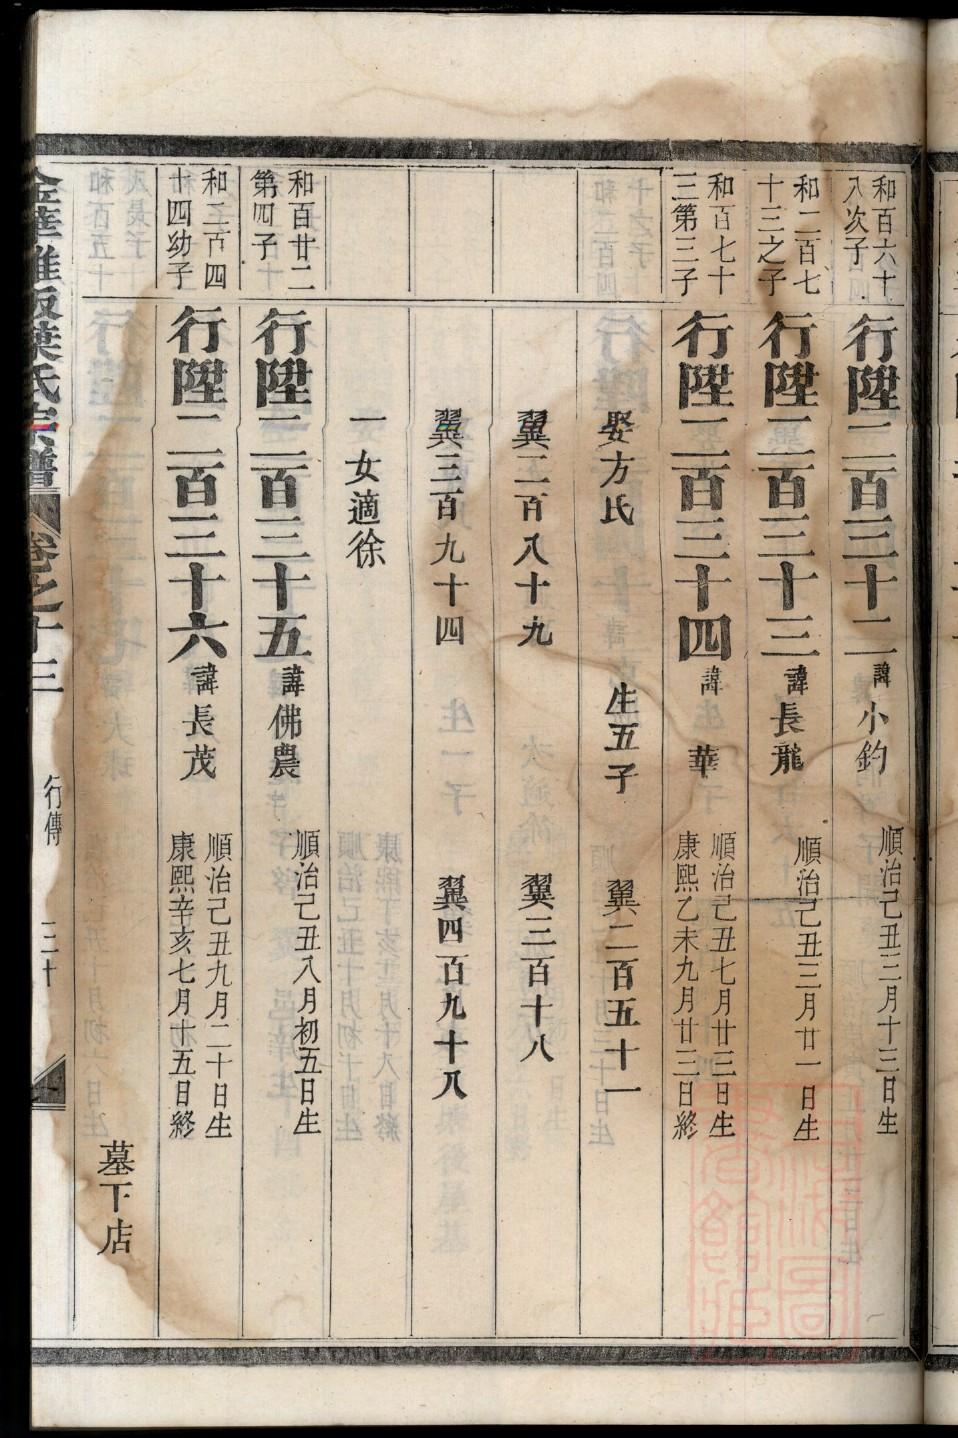 和百六十
八次子
行陞二百三十二
諱小鈞
順治己丑三月十三日生
和二百七
十三之子
行陞二百三十三
諱長龍
順治己丑三月廿一日生
和百七十
三第三子
行陞二百三十四
諱華
順治己丑七月廿三日生
康熙乙未九月廿三日終
娶方氏
生五子
翼二百五十一
翼二百八十九
翼三百十八
翼三百九十四
翼四百九十八
一女適徐
和百廿二
第四子
行陞二百三十五
諱佛農
順治己丑八月初五日生
和二百四
十四幼子
行陞二百三十六
諱長茂
順治己丑九月二十日生
康熙辛亥七月初五日終
墓下店
葉氏宗譜
卷之十三
行傳
三十